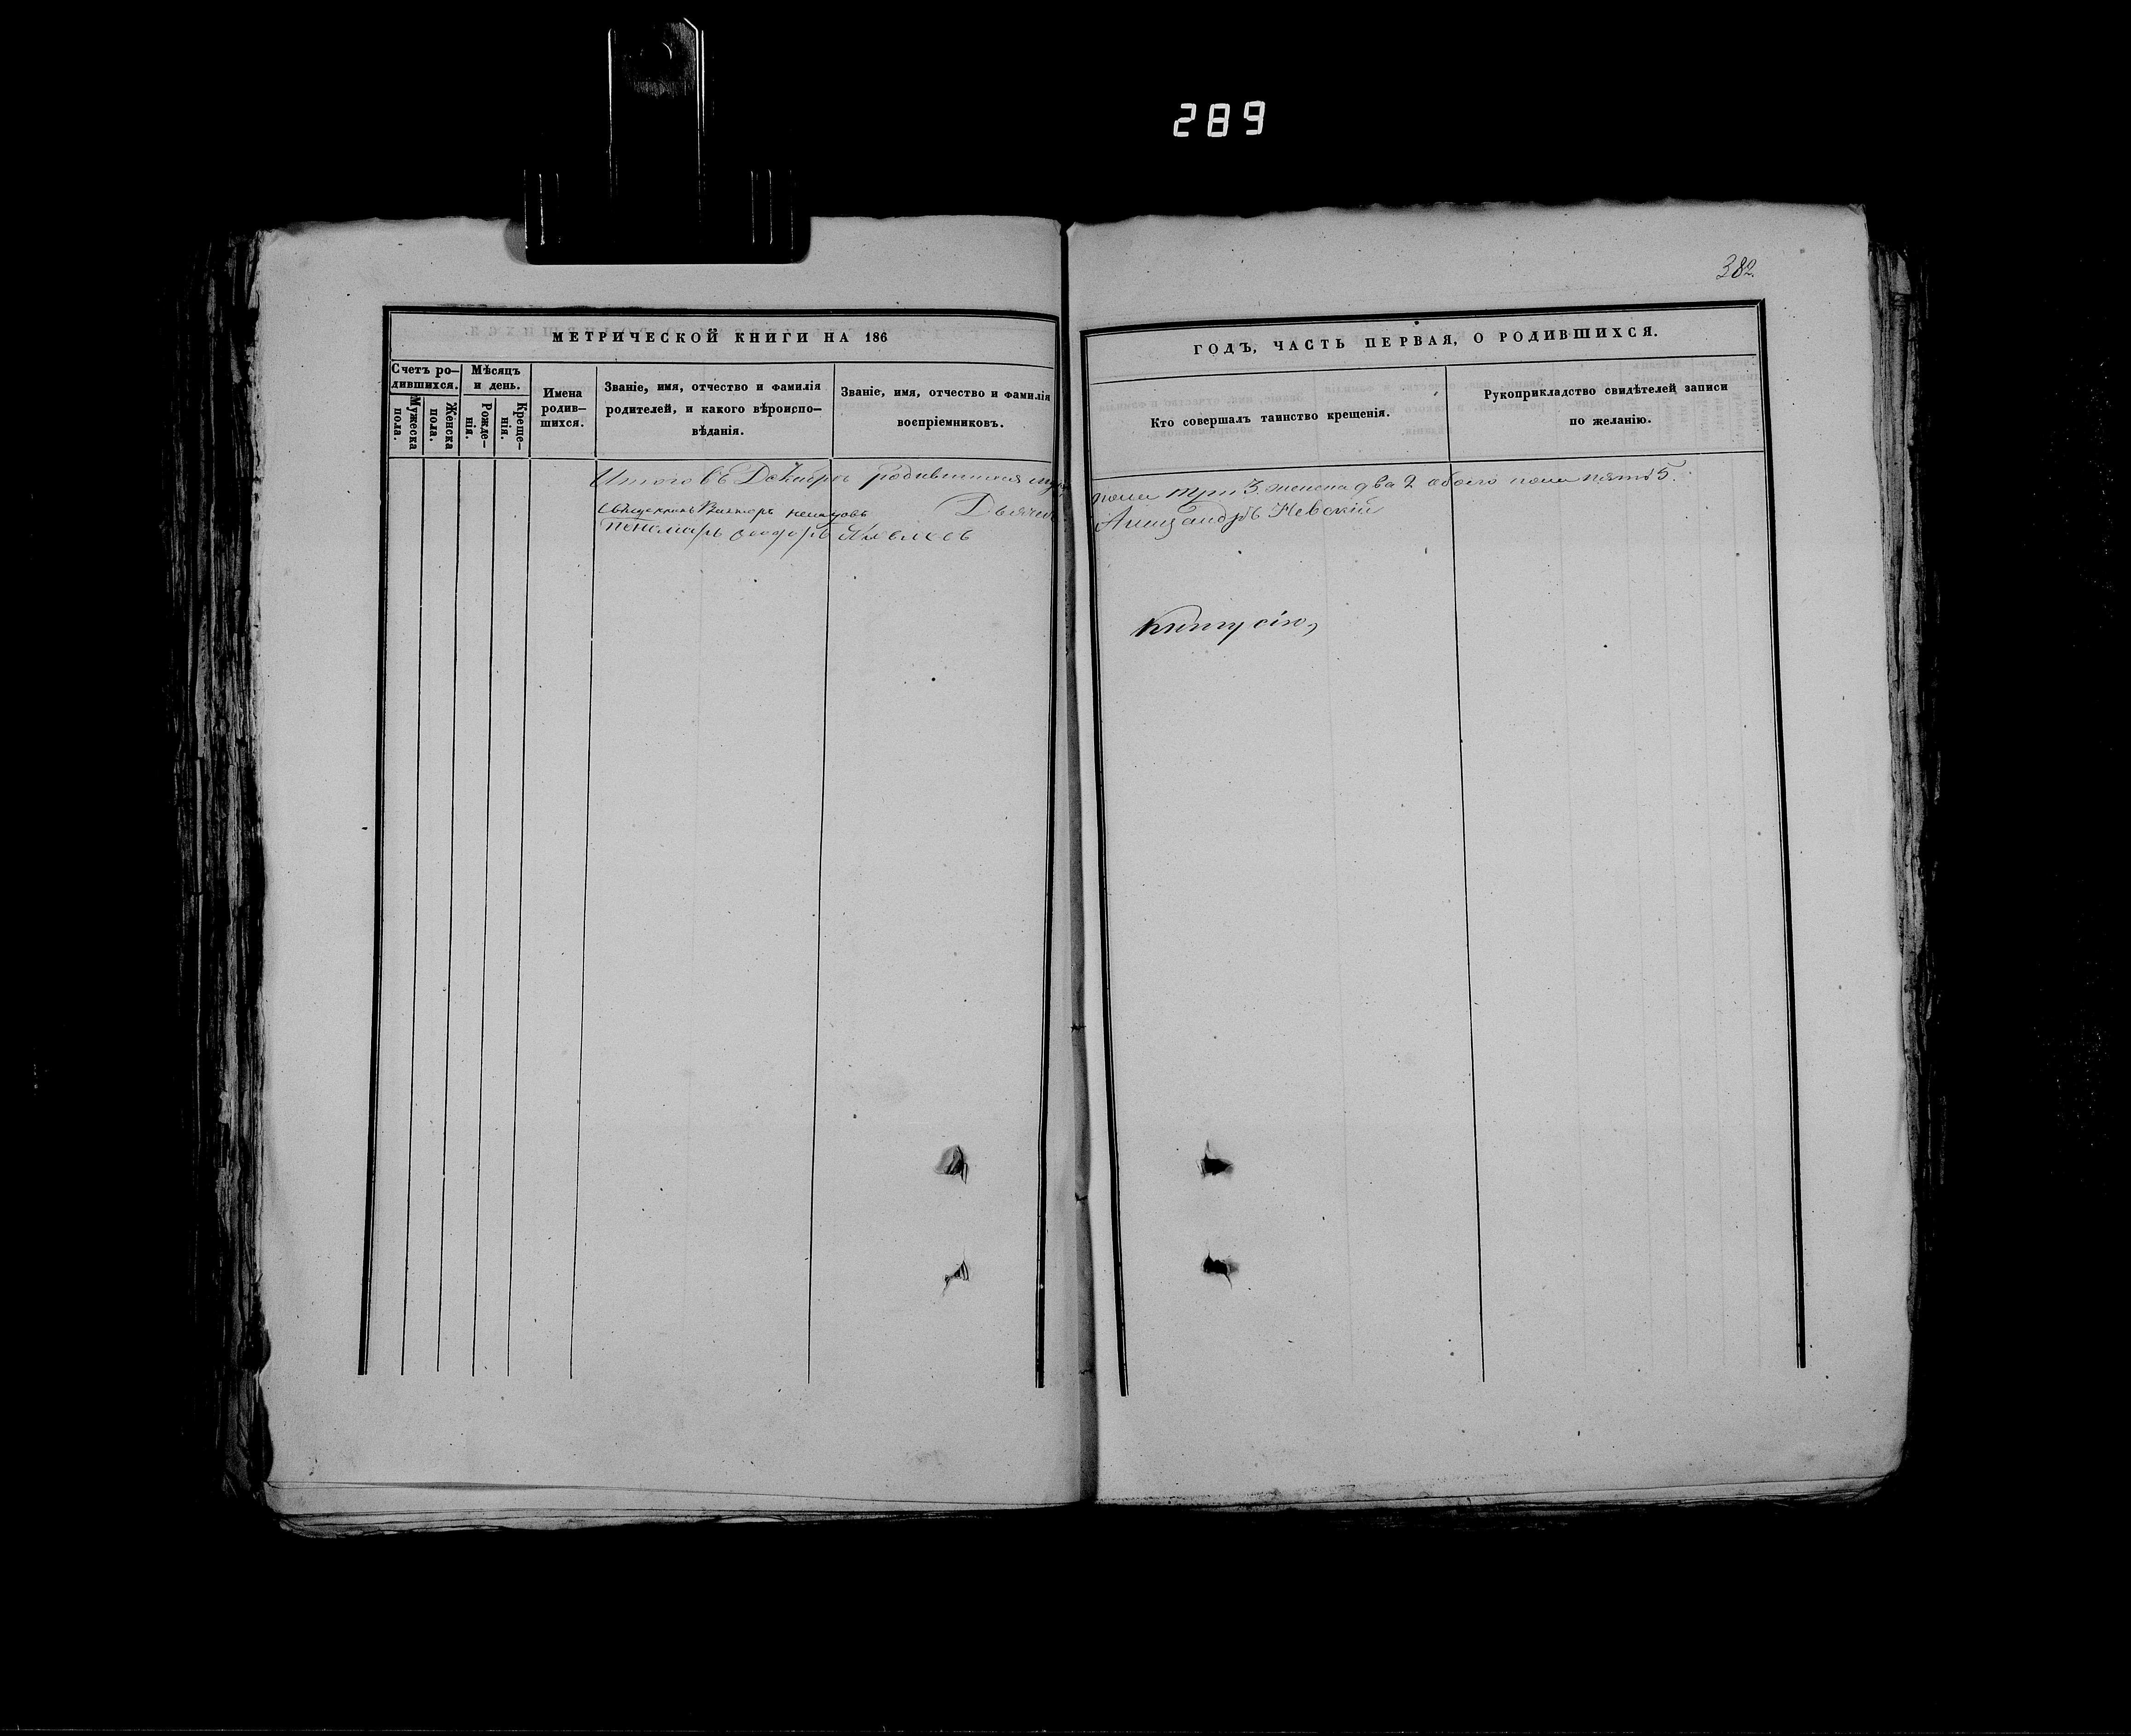 289
382
МЕТРИЧЕСКОЙ КНИГИ НА 186
Счетъ ро-
дившихся.
Мужеска
пола.
Женска
пола.
Мѣсяцъ
и день.
Рожде-
нія.
Креще-
нія.
Имена
родив-
шихся.
Званіе, имя, отчество и фамилія
родителей, и какого вѣроиспо-
вѣданія.
Званіе, имя, отчество и фамилія
воспріемниковъ.
Итого въ Декабрѣ родившихся
Священникъ Викторъ
Дьячекъ
Пономарь Ѳеодоръ
ГОДЪ, ЧАСТЬ ПЕРВАЯ, О РОДИВШИХСЯ.
Кто совершалъ таинство крещенія.
Рукоприкладство свидѣтелей записи
по желанію.
пола три 3. женска два 2 обоего пола пять 5.
Александръ Невскій
книгу сію,